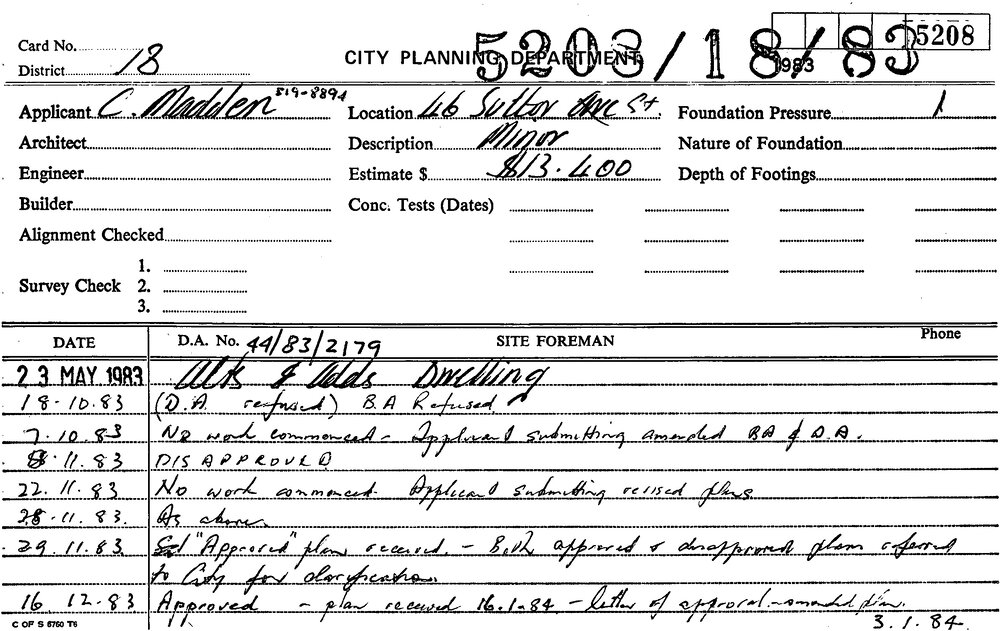 5208
Card No.
5203/18/83
CITY PLANNING DEPARTMENT
1983
District 18
Applicant C. Madden 519-8894 Location 46 Suttor Ave St. Foundation Pressure
Architect Description Minor Nature of Foundation
Engineer Estimate $ $13.400 Depth of Footings
Builder Conc. Tests (Dates)
Alignment Checked
1.
Survey Check 2.
3.
DATE D.A. No. 44/83/2179 SITE FOREMAN Phone
23 MAY 1983 Alts & Adds Dwelling
18-10.83 (D.A refused) B.A Refused
7.10.83 No work commenced - Applicant submitting amended BA & D.A.
8.11.83 DISAPPROVED
22.11.83 No work commenced. Applicant submitting revised plans
28.11.83. As above.
29.11.83 "Approved" plan received. - Both approved & disapproved plans referred
to City for clarification.
16 12.83 Approved - plan received 16.1.84 - letter of approval - amended plan.
3.1.84
C OF S 6760 T6